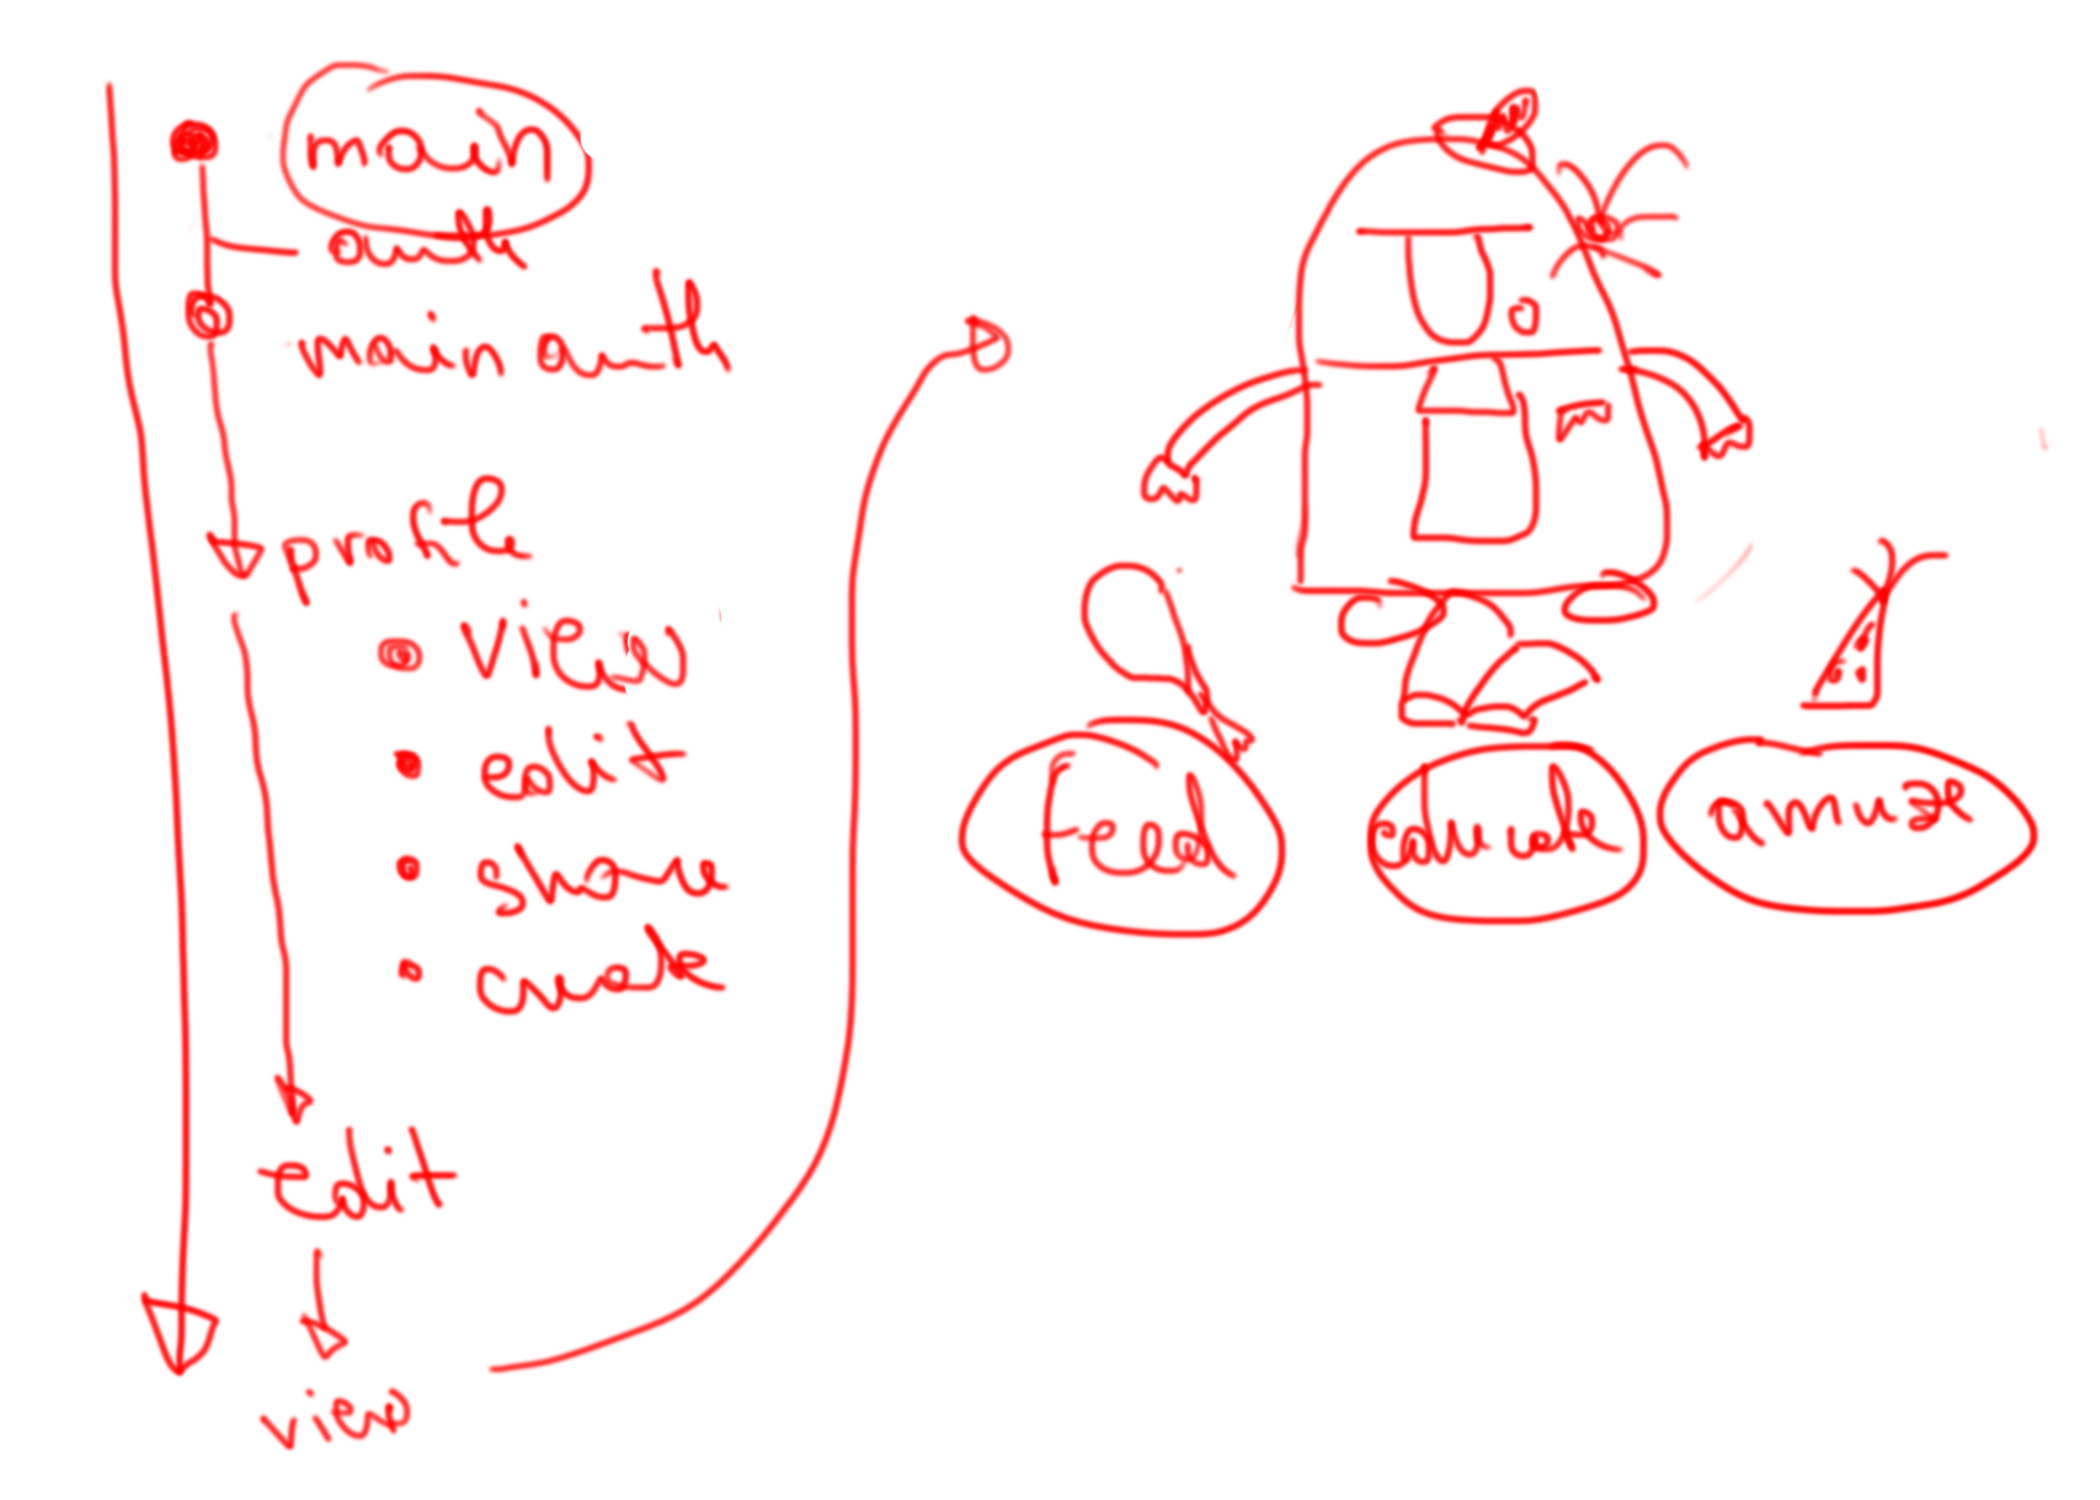 main
auth
main auth
profile
view
edit
share
create
edit
view
Feed
educate
amuze